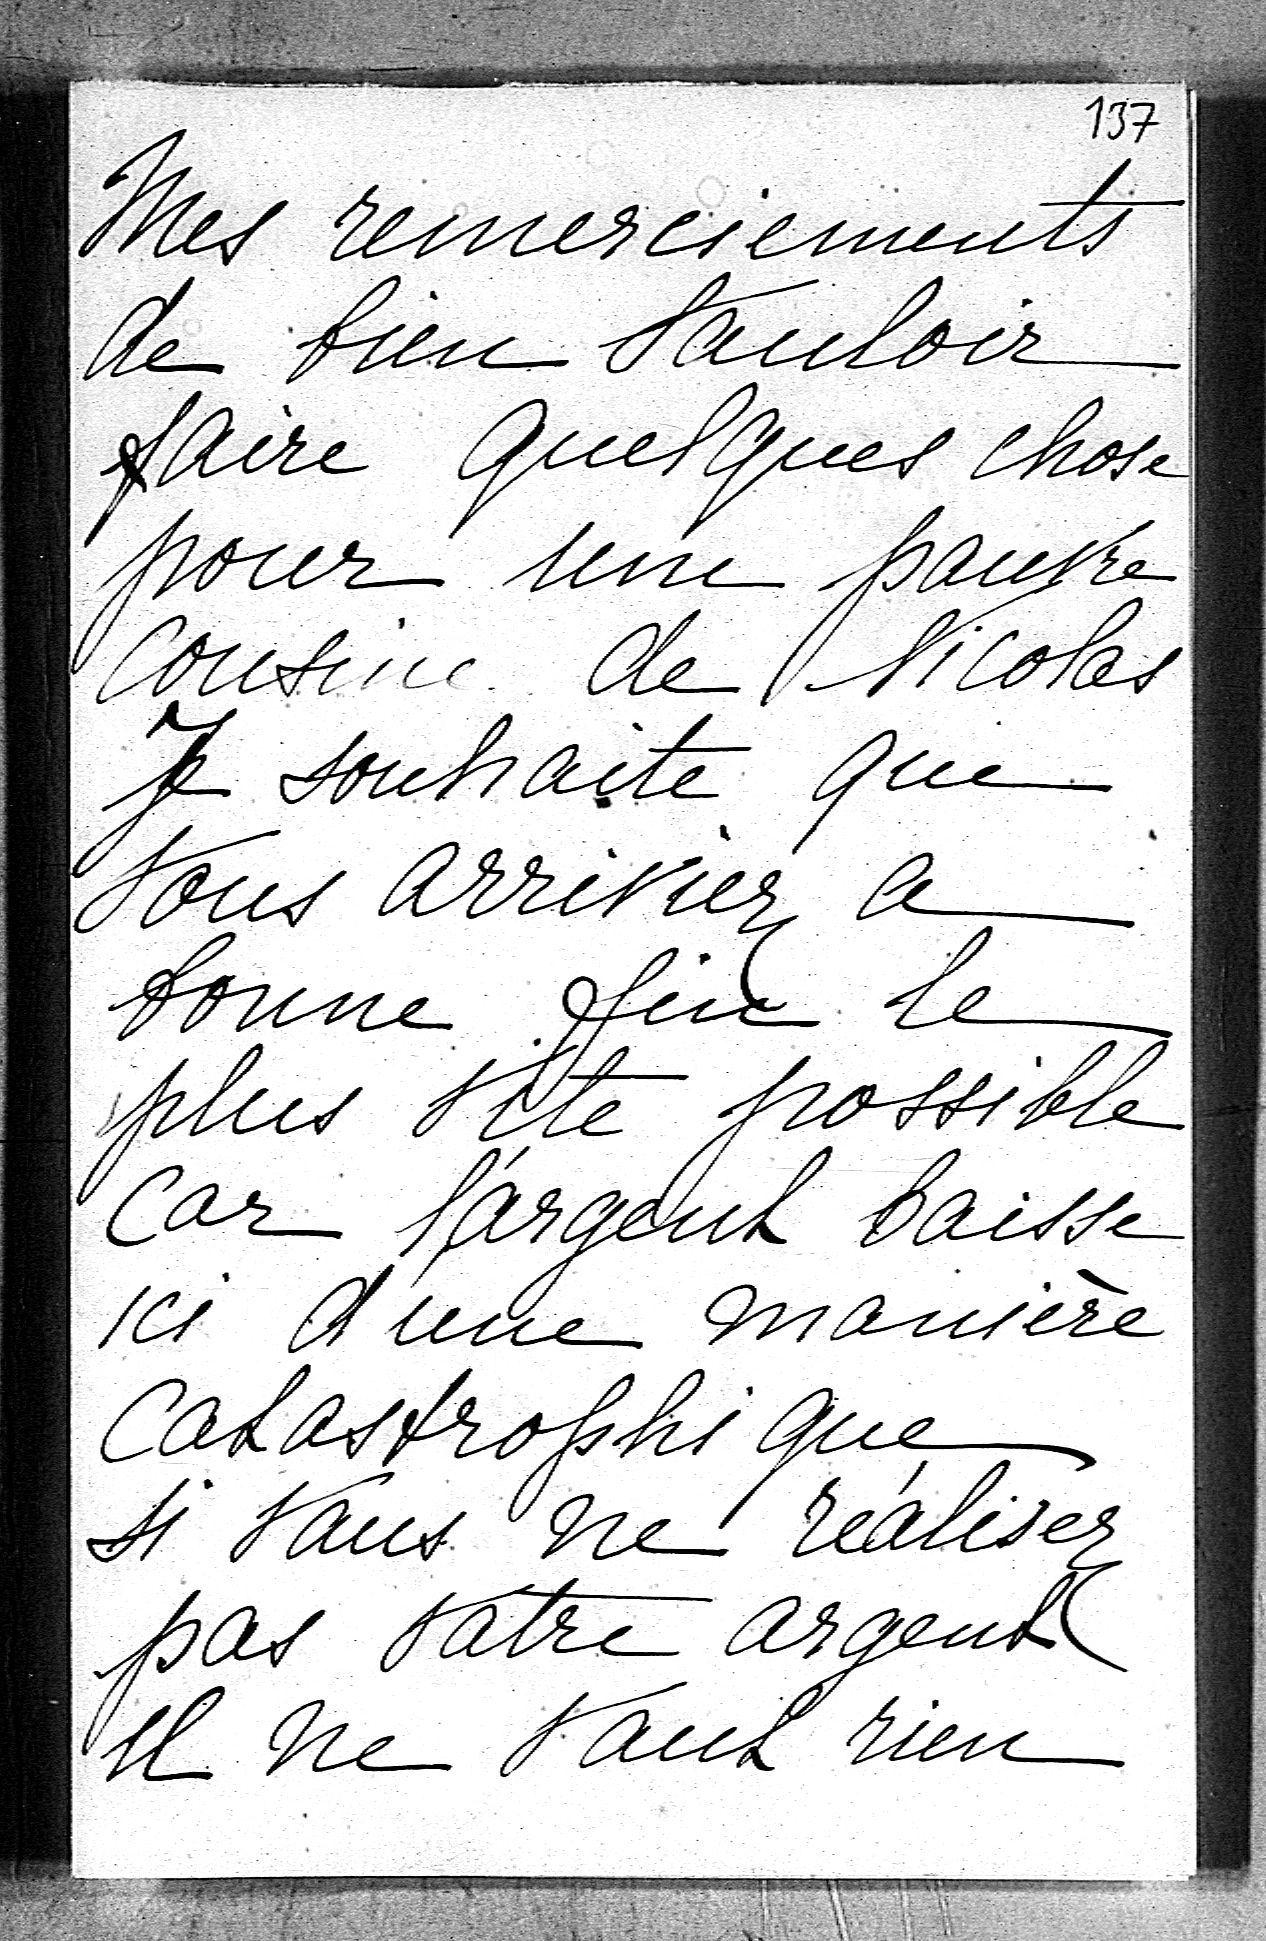 137
Mes remerciements
de bien vouloir
faire quelques chose
pour une pauvre
cousine de Nicolas
Je souhaite que
vous arriviez a
bonne fin le
plus vite possible
Car l'argent baisse
ici d'une manière
catastrophique
si vous ne réalisez
pas votre argent
il ne vaut rien